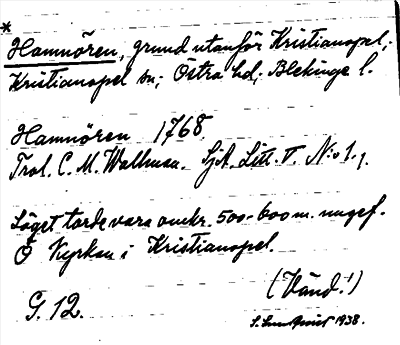 *
Hamnören, grund utanför Kristianopel;
Kristianopel sn; Östra hd; Blekinge l.
Hamnören 1768
Trol. C. M. Wallman. SjA. Litt. V. N:o 1.
Läget torde vara omkr. 500-600 m. ungef.
Ö Kyrkan i Kristianopel.
(Vänd!)
G. 12.
S. Lundquist 1938.